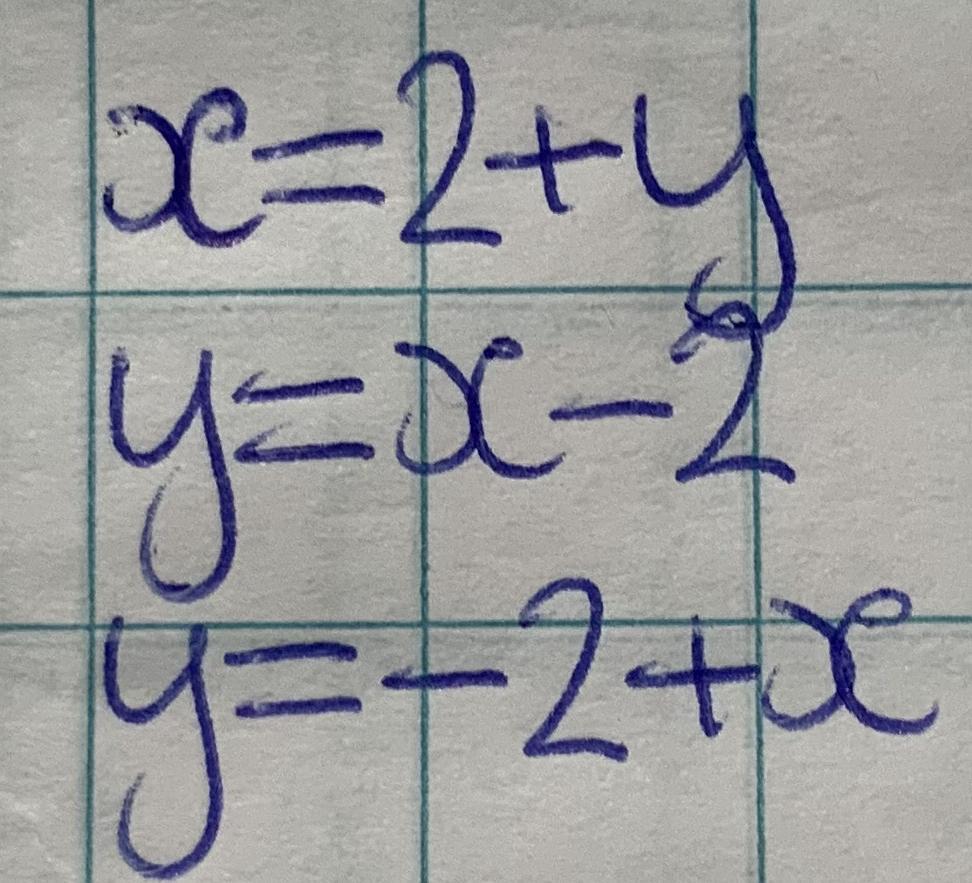 x=2+y
y=x-2
y=-2+x